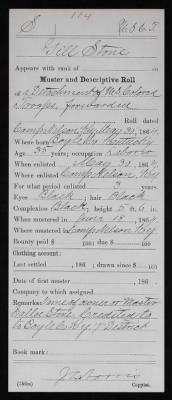 S U.S.C.T.
114
Gill Stone
Appears with rank of
Muster and Descriptive Roll
of a Detachment of U.S. Colored
Troops, forwarded
Roll dated
Camp Nelson Ky May 30, 1864.
Where born Boyle Co Kentucky
Age 35 years; occupation Laborer
When enlisted May 30, 1864.
Where enlisted Camp Nelson, Ky.
For what period enlisted 3 years.
Eyes Black; hair Black
Complexion Black; height 5 ft. 6 in.
When mustered in June 18, 1864.
Where mustered in Camp Nelson Ky.
Bounty paid $ 100; due $ 100
Clothing account:
Last settled , 186 ; drawn since $ 100
Date of first muster , 186 .
Company to which assigned
Remarks: Name of owner or Master
Stone. Credited to
to Boyle Co Ky. District
Book mark:
(586a) Copyist.